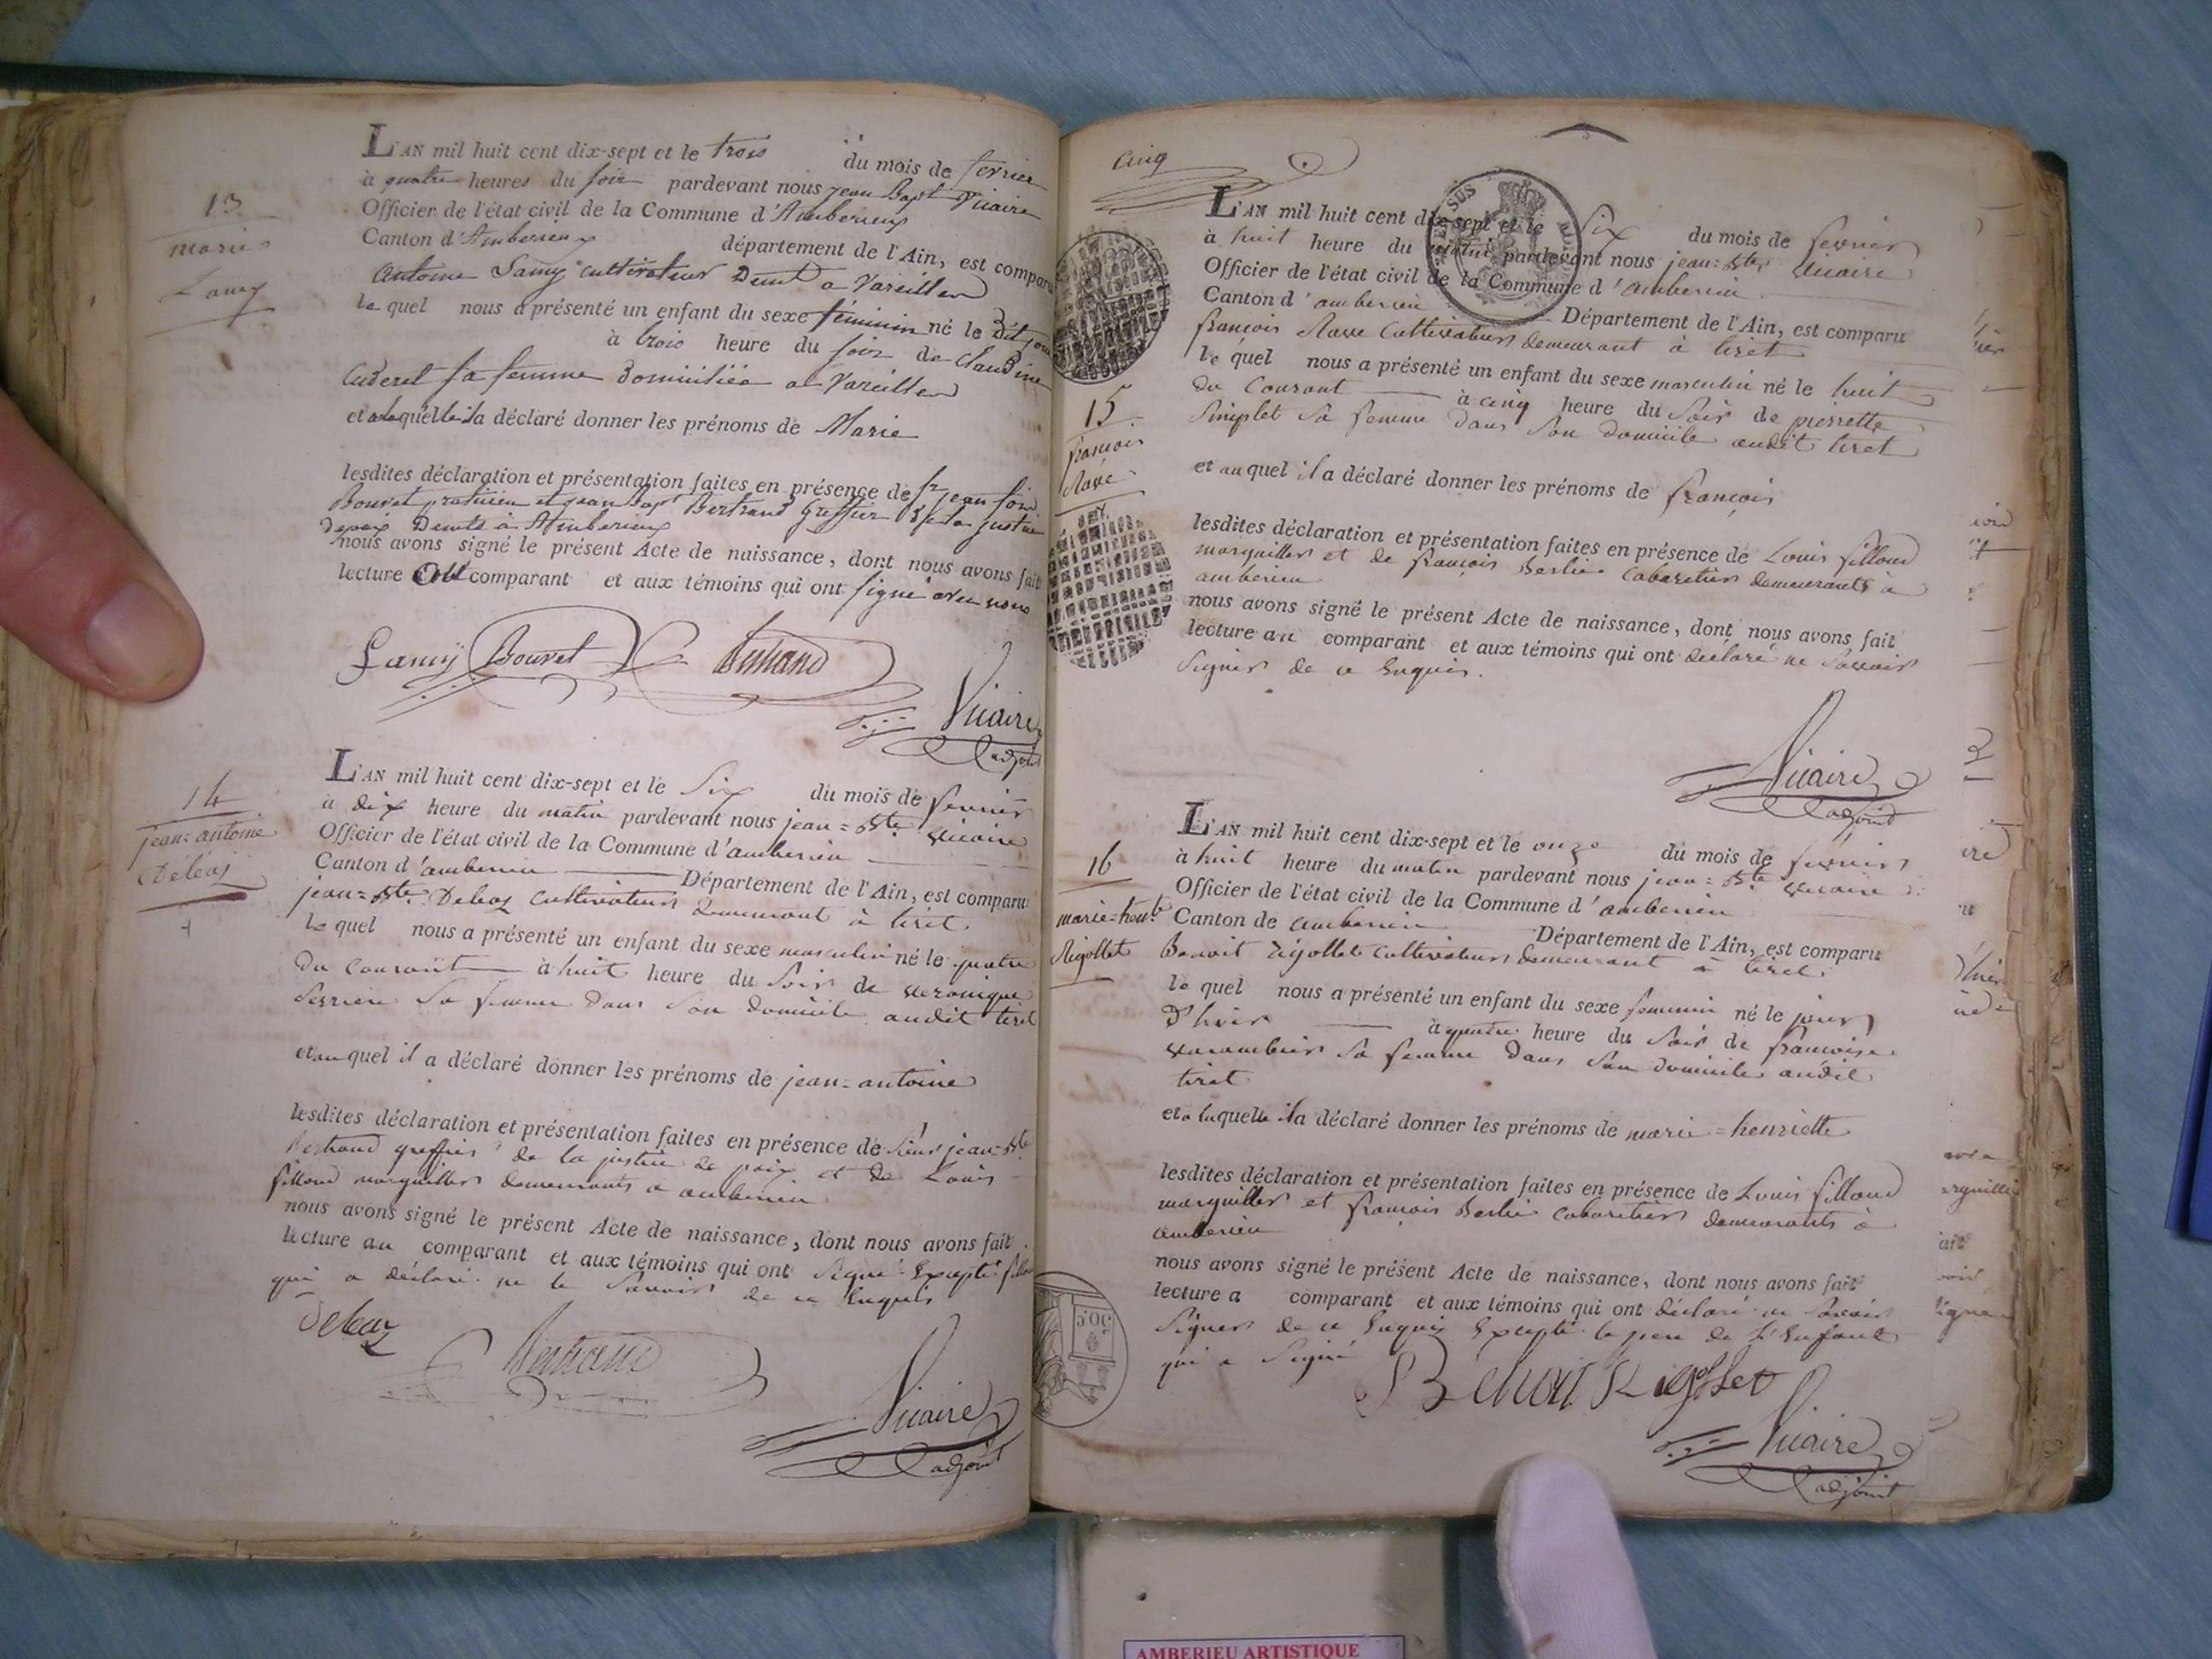 13
marie
Lamy
L'AN mil huit cent dix-sept et le trois du mois de fevrier
à quatre heures du soir pardevant nous jean Bapt Vicaire
Officier de l'état civil de la Commune d'Amberieux
Canton d'Amberieux département de l'Ain, est comparu
Antoine Lamy cultivateur Demt a Vareilles
le quel nous a présenté un enfant du sexe féminin né le Dit jour
à trois heure du soir de Claudine
Cuderet sa femme Domiciliée a Vareilles
et a laquelle il a déclaré donner les prénoms de Marie
lesdites déclaration et présentation faites en présence de sr jean
Bouvet praticien et jean Bapt Bertrand greffier de la justice
depaix Demts à Amberieux
nous avons signé le présent Acte de naissance, dont nous avons fait
lecture au comparant et aux témoins qui ont signé avec nous
Lamy Bouvet Bertrand
Vicaire
adjoint
14
jean=antoine
Deleaz
L'AN mil huit cent dix-sept et le Six du mois de fevrier
à dix heure du matin pardevant nous jean=Bte Vicaire
Officier de l'état civil de la Commune d'amberieu
Canton d'amberieu Département de l'Ain, est comparu
jean=Bte Deleaz Cultivateur demeurant à tiret
le quel nous a présenté un enfant du sexe masculin né le quatre
du courant à huit heure du Soir de veronique
Serriere Sa femme dans Son domicile audit tiret
et au quel il a déclaré donner les prénoms de jean=antoine
lesdites déclaration et présentation faites en présence de Sieur jean=Bte
Bertrand greffier de la justice de paix et de Louis
fillaud marguiller demeurants a amberieu
nous avons signé le présent Acte de naissance, dont nous avons fait
lecture au comparant et aux témoins qui ont Signé Excepté
qui a déclaré ne le Savoir de ce Enquis
Deleaz
Bertrand
Vicaire
adjoint
cinq
15
françois
Ravé
L'AN mil huit cent dix-sept et le Six du mois de fevrier
à huit heure du matin pardevant nous jean=Bte Vicaire
Officier de l'état civil de la Commune d'amberieu
Canton d'amberieu Département de l'Ain, est comparu
françois Rave Cultivateur demeurant à tiret
le quel nous a présenté un enfant du sexe masculin né le huit
du Courant à cinq heure du Soir de pierrette
Simplet Sa femme dans Son domicile audit tiret
et au quel il a déclaré donner les prénoms de françois
lesdites déclaration et présentation faites en présence de Louis fillaud
marguiller et de françois Berlie Cabaretier demeurants à
amberieu
nous avons signé le présent Acte de naissance, dont nous avons fait
lecture au comparant et aux témoins qui ont déclaré ne Savoir
Signer de ce Enquis.
Vicaire
adjoint
16
marie=henrte
Rigollet
L'AN mil huit cent dix-sept et le onze du mois de fevrier
à huit heure du matin pardevant nous jean=Bte Vicaire
Officier de l'état civil de la Commune d'amberieu
Canton de amberieu Département de l'Ain, est comparu
Benoit Rigollet Cultivateur demeurant à tiret
le quel nous a présenté un enfant du sexe feminin né le jour
D'hier à quatre heure du Soir de françoise
Sa femme dans Son domicile audit
tiret
et a laquelle il a déclaré donner les prénoms de marie=henriette
lesdites déclaration et présentation faites en présence de Louis fillaud
marguiller et françois Berlie Cabaretier demeurants à
amberieu
nous avons signé le présent Acte de naissance, dont nous avons fait
lecture a comparant et aux témoins qui ont déclaré ne Savoir
Signer de ce Enquis Excepté le pere de L'Enfant
qui a Signé
Benoit Rigollet
Vicaire
adjoint
50C
AMBERIEU ARTISTIQUE